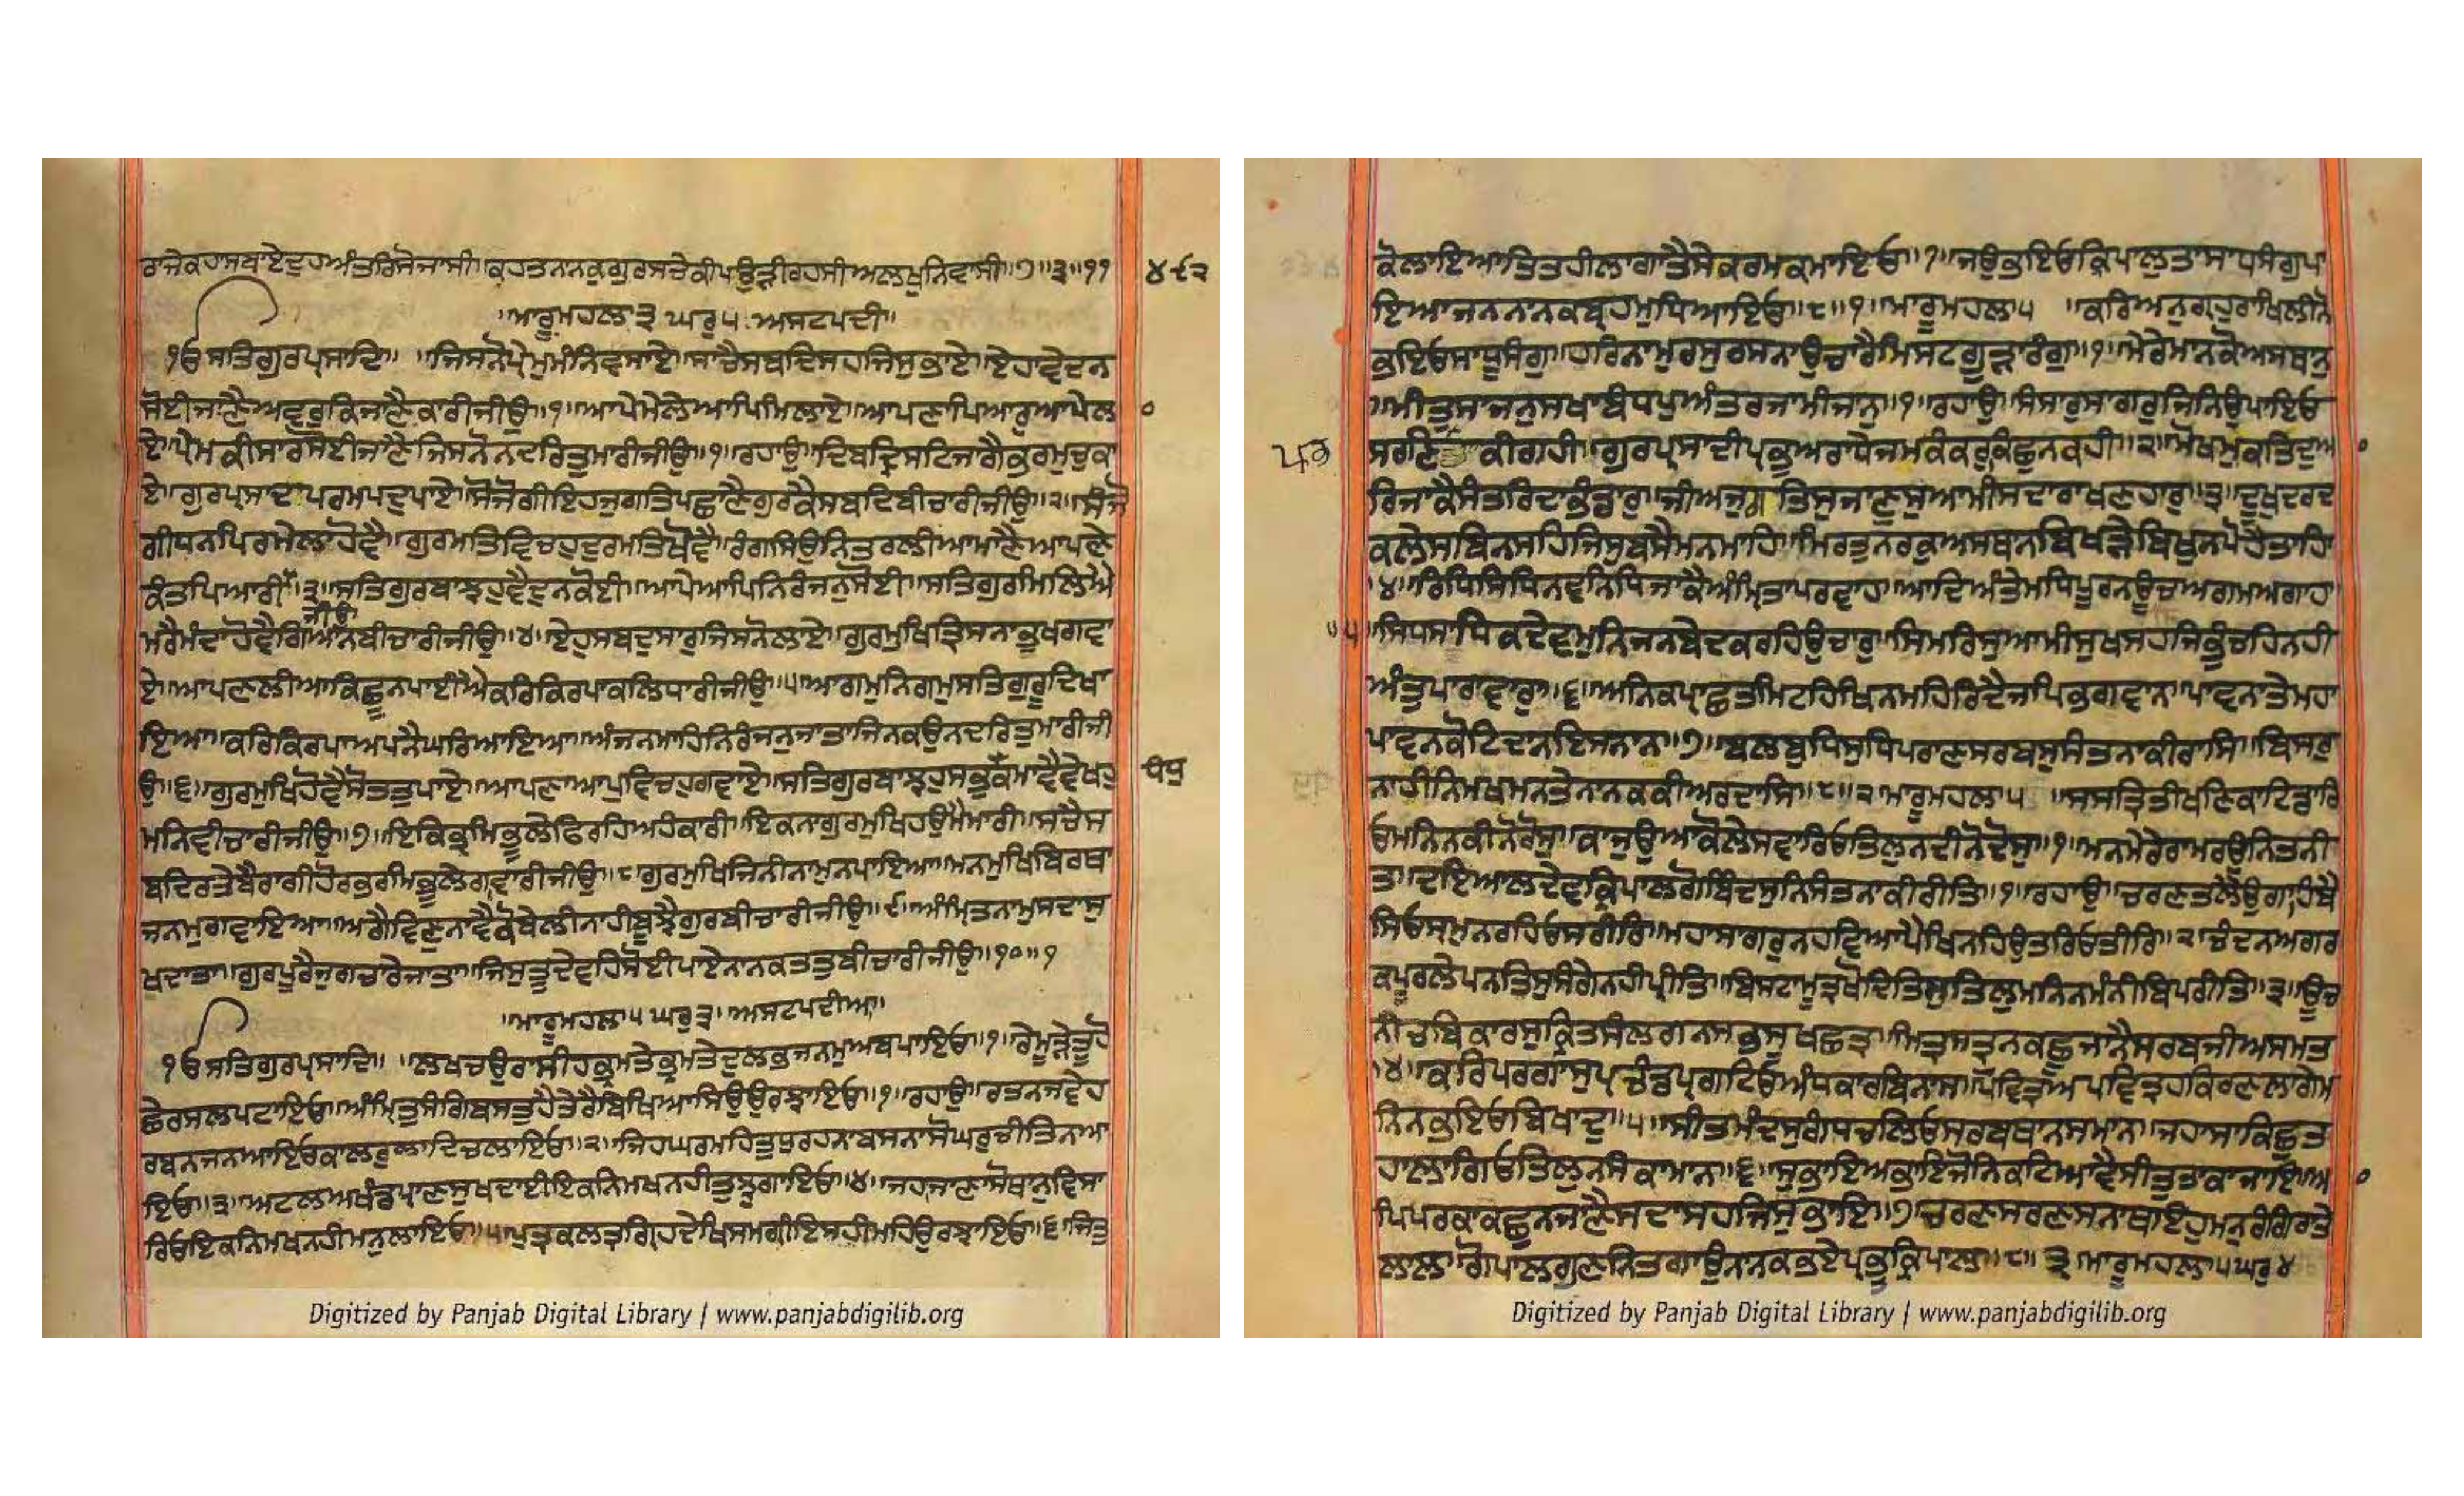 ਰਾਜੇਕਹਸਬਾਏਦੁਹਅੰਤਰਿਸੋਜਾਸੀ॥ਕਹਤਨਨਕੁਗੁਰਸਚੇਕੀਪਉੜੀਰਹਸੀਅਲਖੁਨਿਵਾਸੀ॥੭॥੩॥੧੧
੪੯੨
॥ਮਾਰੂਮਹਲਾ੩ ਘਰੁ੫ ਅਸਟਪਦੀ॥
ੴਸਤਿਗੁਰਪ੍ਰਸਾਦਿ॥ ॥ਜਿਸਨੋਪ੍ਰੇਮੁਮੰਨਿਵਸਾਏ॥ਸਾਚੈਸਬਦਿਸਹਜਿਸੁਭਾਏ॥ਏਹਾਵੇਦਨ
ਸੋਈਜਾਣੈਅਵਰੁਕਿਜਾਣੈਕਾਰੀਜੀਉ॥੧॥ਆਪੇਮੇਲੇਆਪਿਮਿਲਾਏ॥ਆਪਣਾਪਿਆਰੁਆਪੇਲਾ
ਏ॥ਪ੍ਰੇਮਕੀਸਾਰਸੋਈਜਾਣੈਜਿਸਨੋਨਦਰਿਤੁਮਾਰੀਜੀਉ॥੧॥ਰਹਾਉ॥ਦਿਬਦ੍ਰਿਸਟਿਜਾਗੈਭਰਮੁਚੁਕਾ
ਏ॥ਗੁਰਪ੍ਰਸਾਦਿਪਰਮਪਦੁਪਾਏ॥ਸੋਜੋਗੀਇਹਜੁਗਤਿਪਛਾਣੈਗੁਰਕੈਸਬਦਿਬੀਚਾਰੀਜੀਉ॥੨॥ਸੰਜੋ
ਗੀਧਨਪਿਰਮੇਲਾਹੋਵੈ॥ਗੁਰਮਤਿਵਿਚਹੁਦੁਰਮਤਿਖੋਵੈ॥ਰੰਗਸਿਉਨਿਤਰਲੀਆਮਾਣੈਆਪਣੇ
ਕੰਤਪਿਆਰੀ॥੩॥ਸਤਿਗੁਰਬਾਝਹੁਵੈਦੁਨਕੋਈ॥ਆਪੇਆਪਿਨਿਰੰਜਨੁਸੋਈ॥ਸਤਿਗੁਰਮਿਲਿਐ
ਜੀਉ
ਮਰੈਮੰਦਾਹੋਵੈਗਿਆਨਬੀਚਾਰੀਜੀਉ॥੪॥ਏਹੁਸਬਦੁਸਾਰੁਜਿਸਨੋਲਾਏ॥ਗੁਰਮੁਖਿਤ੍ਰਿਸਨਾਭੂਖਗਵਾ
ਏ॥ਆਪਣਲੀਆਕਿਛੂਨਪਾਈਐਕਰਿਕਿਰਪਾਕਲਿਧਾਰੀਜੀਉ॥੫॥ਆਗਮੁਨਿਗਮੁਸਤਿਗੁਰੂਦਿਖਾ
ਇਆ॥ਕਰਿਕਿਰਪਾਅਪਨੈਘਰਿਆਇਆ॥ਅੰਜਨਮਾਹਿਨਿਰੰਜਨੁਜਾਤਾਜਿਨਕਉਨਦਰਿਤੁਮਾਰੀਜੀ
ਉ॥੬॥ਗੁਰਮੁਖਿਹੋਵੈਸੋਤਤੁਪਾਏ॥ਆਪਣਾਆਪੁਵਿਚਹੁਗਵਾਏ॥ਸਤਿਗੁਰਬਾਝਹੁਸਭੁਕੋਮਾਵੈਵੇਖਹੁ
ਧੰਧੁ
ਮਨਿਵੀਚਾਰੀਜੀਉ॥੭॥ਇਕਿਭ੍ਰਮਿਭੂਲੇਫਿਰਹਿਅਹੰਕਾਰੀ॥ਇਕਨਾਗੁਰਮੁਖਿਹਉਮੈਮਾਰੀ॥ਸਚੈਸ
ਬਦਿਰਤੇਬੈਰਾਗੀਹੋਰਭਰਮਿਭੂਲੇਗਾਵਾਰੀਜੀਉ॥੮॥ਗੁਰਮੁਖਿਜਿਨੀਨਾਮੁਨਪਾਇਆ॥ਮਨਮੁਖਿਬਿਰਥਾ
ਜਨਮੁਗਵਾਇਆ॥ਅਗੈਵਿਣੁਨਾਵੈਕੋਬੇਲੀਨਾਹੀਬੂਝੈਗੁਰਬੀਚਾਰੀਜੀਉ॥੯॥ਅੰਮ੍ਰਿਤਨਾਮੁਸਦਾਸੁ
ਖਦਾਤਾ॥ਗੁਰਪੂਰੈਜੁਗਚਾਰੇਜਾਤਾ॥ਜਿਸੁਤੂਦੇਵਹਿਸੋਈਪਾਏਨਾਨਕਤਤੁਬੀਚਾਰੀਜੀਉ॥੧੦॥੧
॥ਮਾਰੂਮਹਲਾ੫ਘਰੁ੩॥ਅਸਟਪਦੀਆ॥
ੴਸਤਿਗੁਰਪ੍ਰਸਾਦਿ॥ ॥ਲਖਚਉਰਾਸੀਹਭ੍ਰਮਤੇਭ੍ਰਮਤੇਦੁਲਭਜਨਮੁਅਬਪਾਇਓ॥੧॥ਰੇਮੂੜੇਤੂਹੋ
ਛੈਰਸਲਪਟਾਇਓ॥ਅੰਮ੍ਰਿਤੁਸੰਗਿਬਸਤੁਹੈਤੇਰੈਬਿਖਿਆਸਿਉਉਰਝਾਇਓ॥੧॥ਰਹਾਉ॥ਰਤਨਜਵੇਹ
ਰਬਨਜਨਆਇਓਕਾਲਰੁਲਾਦਿਚਲਾਇਓ॥੨॥ਜਿਹਘਰਮਹਿਤੁਧੁਰਹਨਾਬਸਨਾਸੋਘਰੁਚੀਤਿਨਆ
ਇਓ॥੩॥ਅਟਲਅਖੰਡਪ੍ਰਾਣਸੁਖਦਾਈਇਕਨਿਮਖਨਹੀਤੁਝੁਗਾਇਓ॥੪॥ਜਹਾਜਾਣਾਸੋਥਾਨੁਵਿਸਾ
ਰਿਓਇਕਨਿਮਖਨਹੀਮਨੁਲਾਇਓ॥੫॥ਪੁਤ੍ਰਕਲਤ੍ਰਗ੍ਰਿਹਦੇਖਿਸਮਗ੍ਰੀਇਸਹੀਮਹਿਉਰਝਾਇਓ॥੬॥ਜਿਤੁ
Digitized by Panjab Digital Library | www.panjabdigilib.org
ਕੋਲਾਇਆਤਿਤਹੀਲਾਗਾਤੈਸੇਕਰਮਕਮਾਇਓ॥੭॥ਜਉਭਇਓਕ੍ਰਿਪਾਲੁਤਾਸਾਧਸੰਗੁਪਾ
ਇਆਜਨਨਾਨਕਬ੍ਰਹਮੁਧਿਆਇਓ॥੮॥੧॥ਮਾਰੂਮਹਲਾ੫ ॥ਕਰਿਅਨੁਗ੍ਰਹੁਰਾਖਿਲੀਨੋ
ਭਇਓਸਾਧੂਸੰਗੁ॥ਹਰਿਨਾਮੁਰਸੁਰਸਨਾਉਚਾਰੈਮਿਸਟਗੂੜਾਰੰਗੁ॥੧॥ਮੇਰੇਮਾਨਕੋਅਸਥਾਨੁ
॥ਮੀਤੁਸਾਜਨੁਸਖਾਬੰਧਪੁਅੰਤਰਜਾਮੀਜਾਨੁ॥੧॥ਰਹਾਉ॥ਸੰਸਾਰੁਸਾਗਰੁਜਿਨਿਉਪਾਇਓ
ਸਰਣਿਤਾਕੀਗਹੀ॥ਗੁਰਪ੍ਰਸਾਦੀਪ੍ਰਭੁਅਰਾਧੇਜਮਕੰਕਰੁਕਿਛੁਨਕਹੀ॥੨॥ਮੋਖਮੁਕਤਿਦੁਆ
ਰਿਜਾਕੈਸੰਤਰਿਦਾਭੰਡਾਰੁ॥ਜੀਅਜੁਗਤਿਸੁਜਾਣੁਸੁਆਮੀਸਦਾਰਾਖਣਹਾਰੁ॥੩॥ਦੁਖਦਰਦ
ਕਲੇਸਬਿਨਸਹਿਜਿਸੁਬਸੈਮਨਮਾਹਿ॥ਮਿਰਤੁਨਰਕੁਅਸਥਾਨਬਿਖੜੇਬਿਖੁਨਪੋਹੈਤਾਹਿ
॥੪॥ਰਿਧਿਸਿਧਿਨਵਨਿਧਿਜਾਕੈਅੰਮ੍ਰਿਤਾਪਰਵਾਹ॥ਆਦਿਅੰਤੇਮਧਿਪੂਰਨਊਚਾਅਗਮਅਗਾਹ
॥੫॥ਸਿਧਸਾਧਿਕਦੇਵਮੁਨਿਜਨਬੇਦਕਰਹਿਉਚਾਰੁ॥ਸਿਮਰਿਸੁਆਮੀਸੁਖਸਹਜਿਭੁੰਚਹਿਨਹੀ
ਅੰਤੁਪਾਰਾਵਾਰੁ॥੬॥ਅਨਿਕਪ੍ਰਾਛਤਮਿਟਹਿਖਿਨਮਹਿਰਿਦੈਜਪਿਭਗਵਾਨ॥ਪਾਵਨਾਤੇਮਹਾ
ਪਾਵਨਕੋਟਿਦਾਨਇਸਨਾਨ॥੭॥ਬਲਬੁਧਿਸੁਧਿਪਰਾਣਸਰਬਸੁਸੰਤਨਾਕੀਰਾਸਿ॥ਬਿਸਰੁ
ਨਾਹੀਨਿਮਖਮਨਤੇਨਾਨਕਕੀਅਰਦਾਸਿ॥੮॥੨॥ਮਾਰੂਮਹਲਾ੫ ॥ਸਸਤ੍ਰਿਤੀਖਣਿਕਾਟਿਡਾਰਿ
ਓਮਨਿਨਕੀਨੋਰੋਸੁ॥ਕਾਜੁਉਆਕੋਲੇਸਵਾਰਿਓਤਿਲੁਨਦੀਨੋਦੋਸੁ॥੧॥ਮਨਮੇਰੇਰਾਮਰਉਨਿਤਨੀ
ਤਿ॥ਦਇਆਲਦੇਵਕ੍ਰਿਪਾਲਗੋਬਿੰਦਸੁਨਿਸੰਤਨਾਕੀਰੀਤਿ॥੧॥ਰਹਾਉ॥ਚਰਣਤਲੈਉਗਾਹਿਬੈ
ਸਿਓਸ੍ਰਮੁਨਰਹਿਓਸਰੀਰਿ॥ਮਹਾਸਾਗਰੁਨਹਵਿਆਪੈਖਿਨਹਿਉਤਰਿਓਤੀਰਿ॥੨॥ਚੰਦਨਅਗਰ
ਕਪੂਰਲੇਪਨਤਿਸੁਸੰਗੇਨਹੀਪ੍ਰੀਤਿ॥ਬਿਸਟਾਮੂਤ੍ਰਖੋਦਿਤਿਲੁਤਿਲੁਮਨਿਨਮੰਨੀਬਿਪਰੀਤਿ॥੩॥ਊਚ
ਨੀਚਬਿਕਾਰਸੁਕ੍ਰਿਤਸੰਲਗਨਸਭਸੁਖਛਤ੍ਰ॥ਮਿਤ੍ਰਸਤ੍ਰੁਨਕਛੂਜਾਨੈਸਰਬਜੀਅਸਮਤ
॥੪॥ਕਰਿਪਰਗਾਸੁਪ੍ਰਚੰਡਪ੍ਰਗਟਿਓਅੰਧਕਾਰਬਿਨਾਸ॥ਪਵਿਤ੍ਰਅਪਵਿਤ੍ਰਹਕਿਰਣਲਾਗੇਮ
ਨਿਨਭਇਓਬਿਖਾਦੁ॥੫॥ਸੀਤਮੰਦਸੁਗੰਧਚਲਿਓਸਰਬਥਾਨਸਮਾਨ॥ਜਹਾਸਾਕਿਛੁਤ
ਹਾਲਾਗਿਓਤਿਲੁਨਸੰਕਾਮਾਨ॥੬॥ਸੁਭਾਇਅਭਾਇਜੋਨਿਕਟਿਆਵੈਸੀਤੁਤਾਕਾਜਾਇ॥ਆ
ਪਪਰਕਾਕਛੁਨਜਾਣੈਸਦਾਸਹਜਿਸੁਭਾਇ॥੭॥ਚਰਣਸਰਣਸਨਾਥਇਹੁਮਨੁਰੰਗਿਰਾਤੇ
ਲਾਲ॥ਗੋਪਾਲਗੁਣਨਿਤਗਾਉਨਾਨਕਭਏਪ੍ਰਭੂਕ੍ਰਿਪਾਲ॥੮॥੩॥ਮਾਰੂਮਹਲਾ੫ਘਰੁ੪
Digitized by Panjab Digital Library | www.panjabdigilib.org